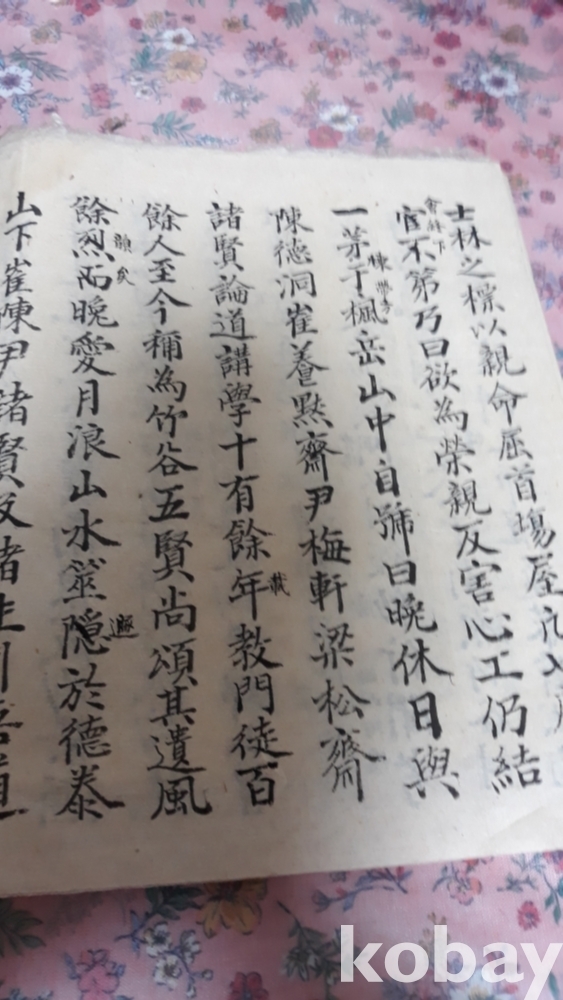 士林之標以親命屈首場屋
官不第乃曰欲為榮親反害心工仍結
一茅于楓岳山中自號曰晩休日與
陳德洞崔養黙齋尹梅軒梁松齋
諸賢論道講學十有餘年教門徒百
餘人至今稱為竹谷五賢尚頌其遺風
餘烈而晩愛月浪山水筮隠於德泰
山下崔陳尹諸賢及諸生
載
遯
韻矣
kobay